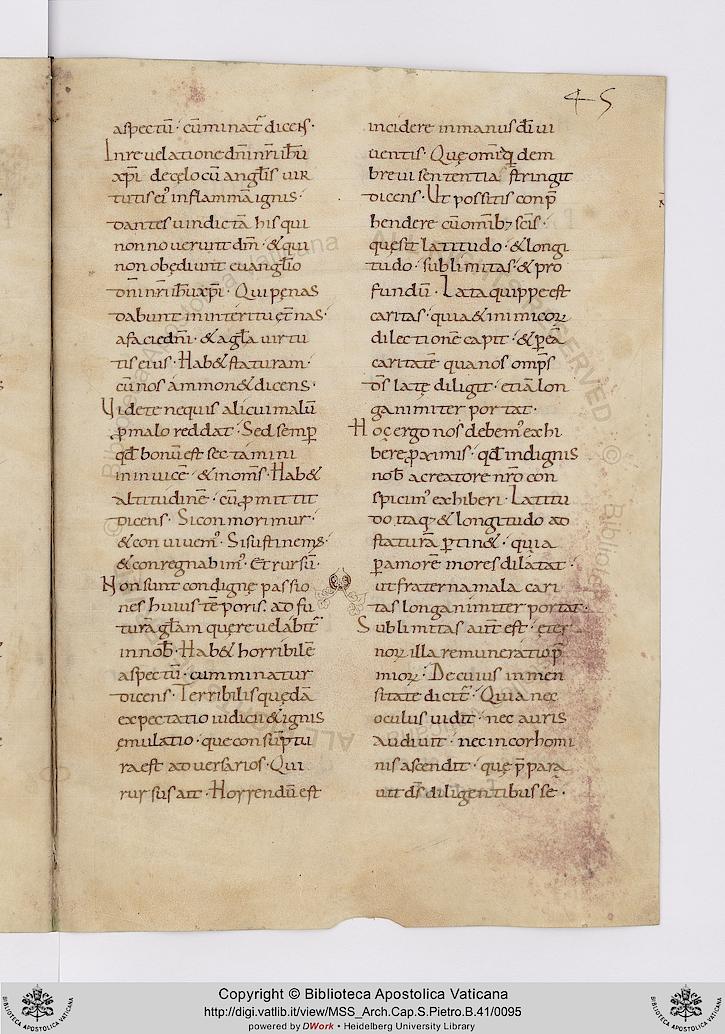 45
aspectū · cūminat᷑ dicens ·
Inreuelatione dn̄i nr̄i ihū
xp̄i decęlo cū angłis uir
tutis ei᷒ inflammā ignis ·
dantes uindictā his qui
non nouerunt dm̄ · & qui
non obędiunt euanglīo
dn̄i nr̄i ihū xp̄i · Qui penas
dabunt in interitu ęt̄nas ·
afacie dn̄i · & agłā uirtu
tis eius · Hab& staturam ·
cū nos ammon& dicens ·
Videte nequis alicui malū
ꝓ malo reddat · Sed semꝑ
qđ bonū est sectamini
in inuicē · & inom̄s · Hab&
altitudinē · cū ꝓmittit
dicens · Si conmorimur ·
& conuiuem᷒ · Sisustinem᷒ ·
& conregnabim᷒ · Et rursū ·
Non sunt condignę passio
nes huius tēporis · ad fu
turā głam quę reuelabit᷑
in nob̄ · Hab& horribilē
aspectū · cum minatur
dicens · Terribilis quędā
expectatio iudicii & ignis
ęmulatio · que consūptu
ra est aduersarios · Qui
rursus ait · Horrendū est
incidere inmanus dī ui
uentis · Quę om̄ia q̄dem
breui sententia stringit
dicens · Ut possitis conp̄
hendere cū omib; scīs ·
quę sit latitudo · & longi
tudo · sublimitas · & pro
fundū · Lata quippe est
caritas · quia & inimicoꝝ
dilectionē capit · & ꝑeā
caritatē qua nos omp̄s
ds̄ late diligit · etiā lon
ganimiter portat ·
Hoc ergo nos debem᷒ exhi
bere ꝓximis · qđ indignis
nob̄ acreatore nr̄o con
spicim᷒ exhiberi · Latitu
do itaq; & longitudo ad
staturā ꝑtin& · quia
ꝑ amorē mores dilatat ·
ut fraterna mala cari
tas longanimiter portat ·
Sublimitas aut̄ est · ęter
noꝝ illa remuneratio p̄
mioꝝ · De cuius inmen
sitate dicit᷑ · Quia nec
oculus uidit · nec auris
audiuit · nec in cor homi
nis ascendit · quę p̄para
uit ds̄ diligentibus se ·
Copyright © Biblioteca Apostolica Vaticana
http://digi.vatlib.it/view/MSS_Arch.Cap.S.Pietro.B.41/0095
powered by DWork • Heidelberg University Library